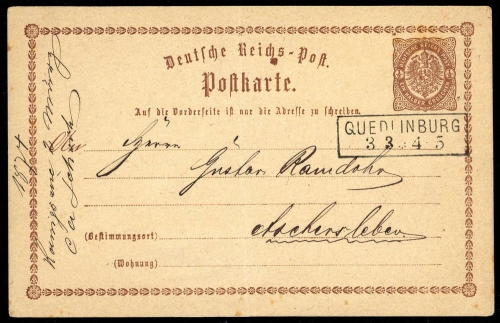 Deutsche Reichs-Post.
Postkarte.
Auf die Vorderseite ist nur die Adresse zu schreiben.
QUEDLINBURG
3 3 4-5
An Herrn
Gustav Ramdohr
(Bestimmungsort)
Aschersleben
(Wohnung)